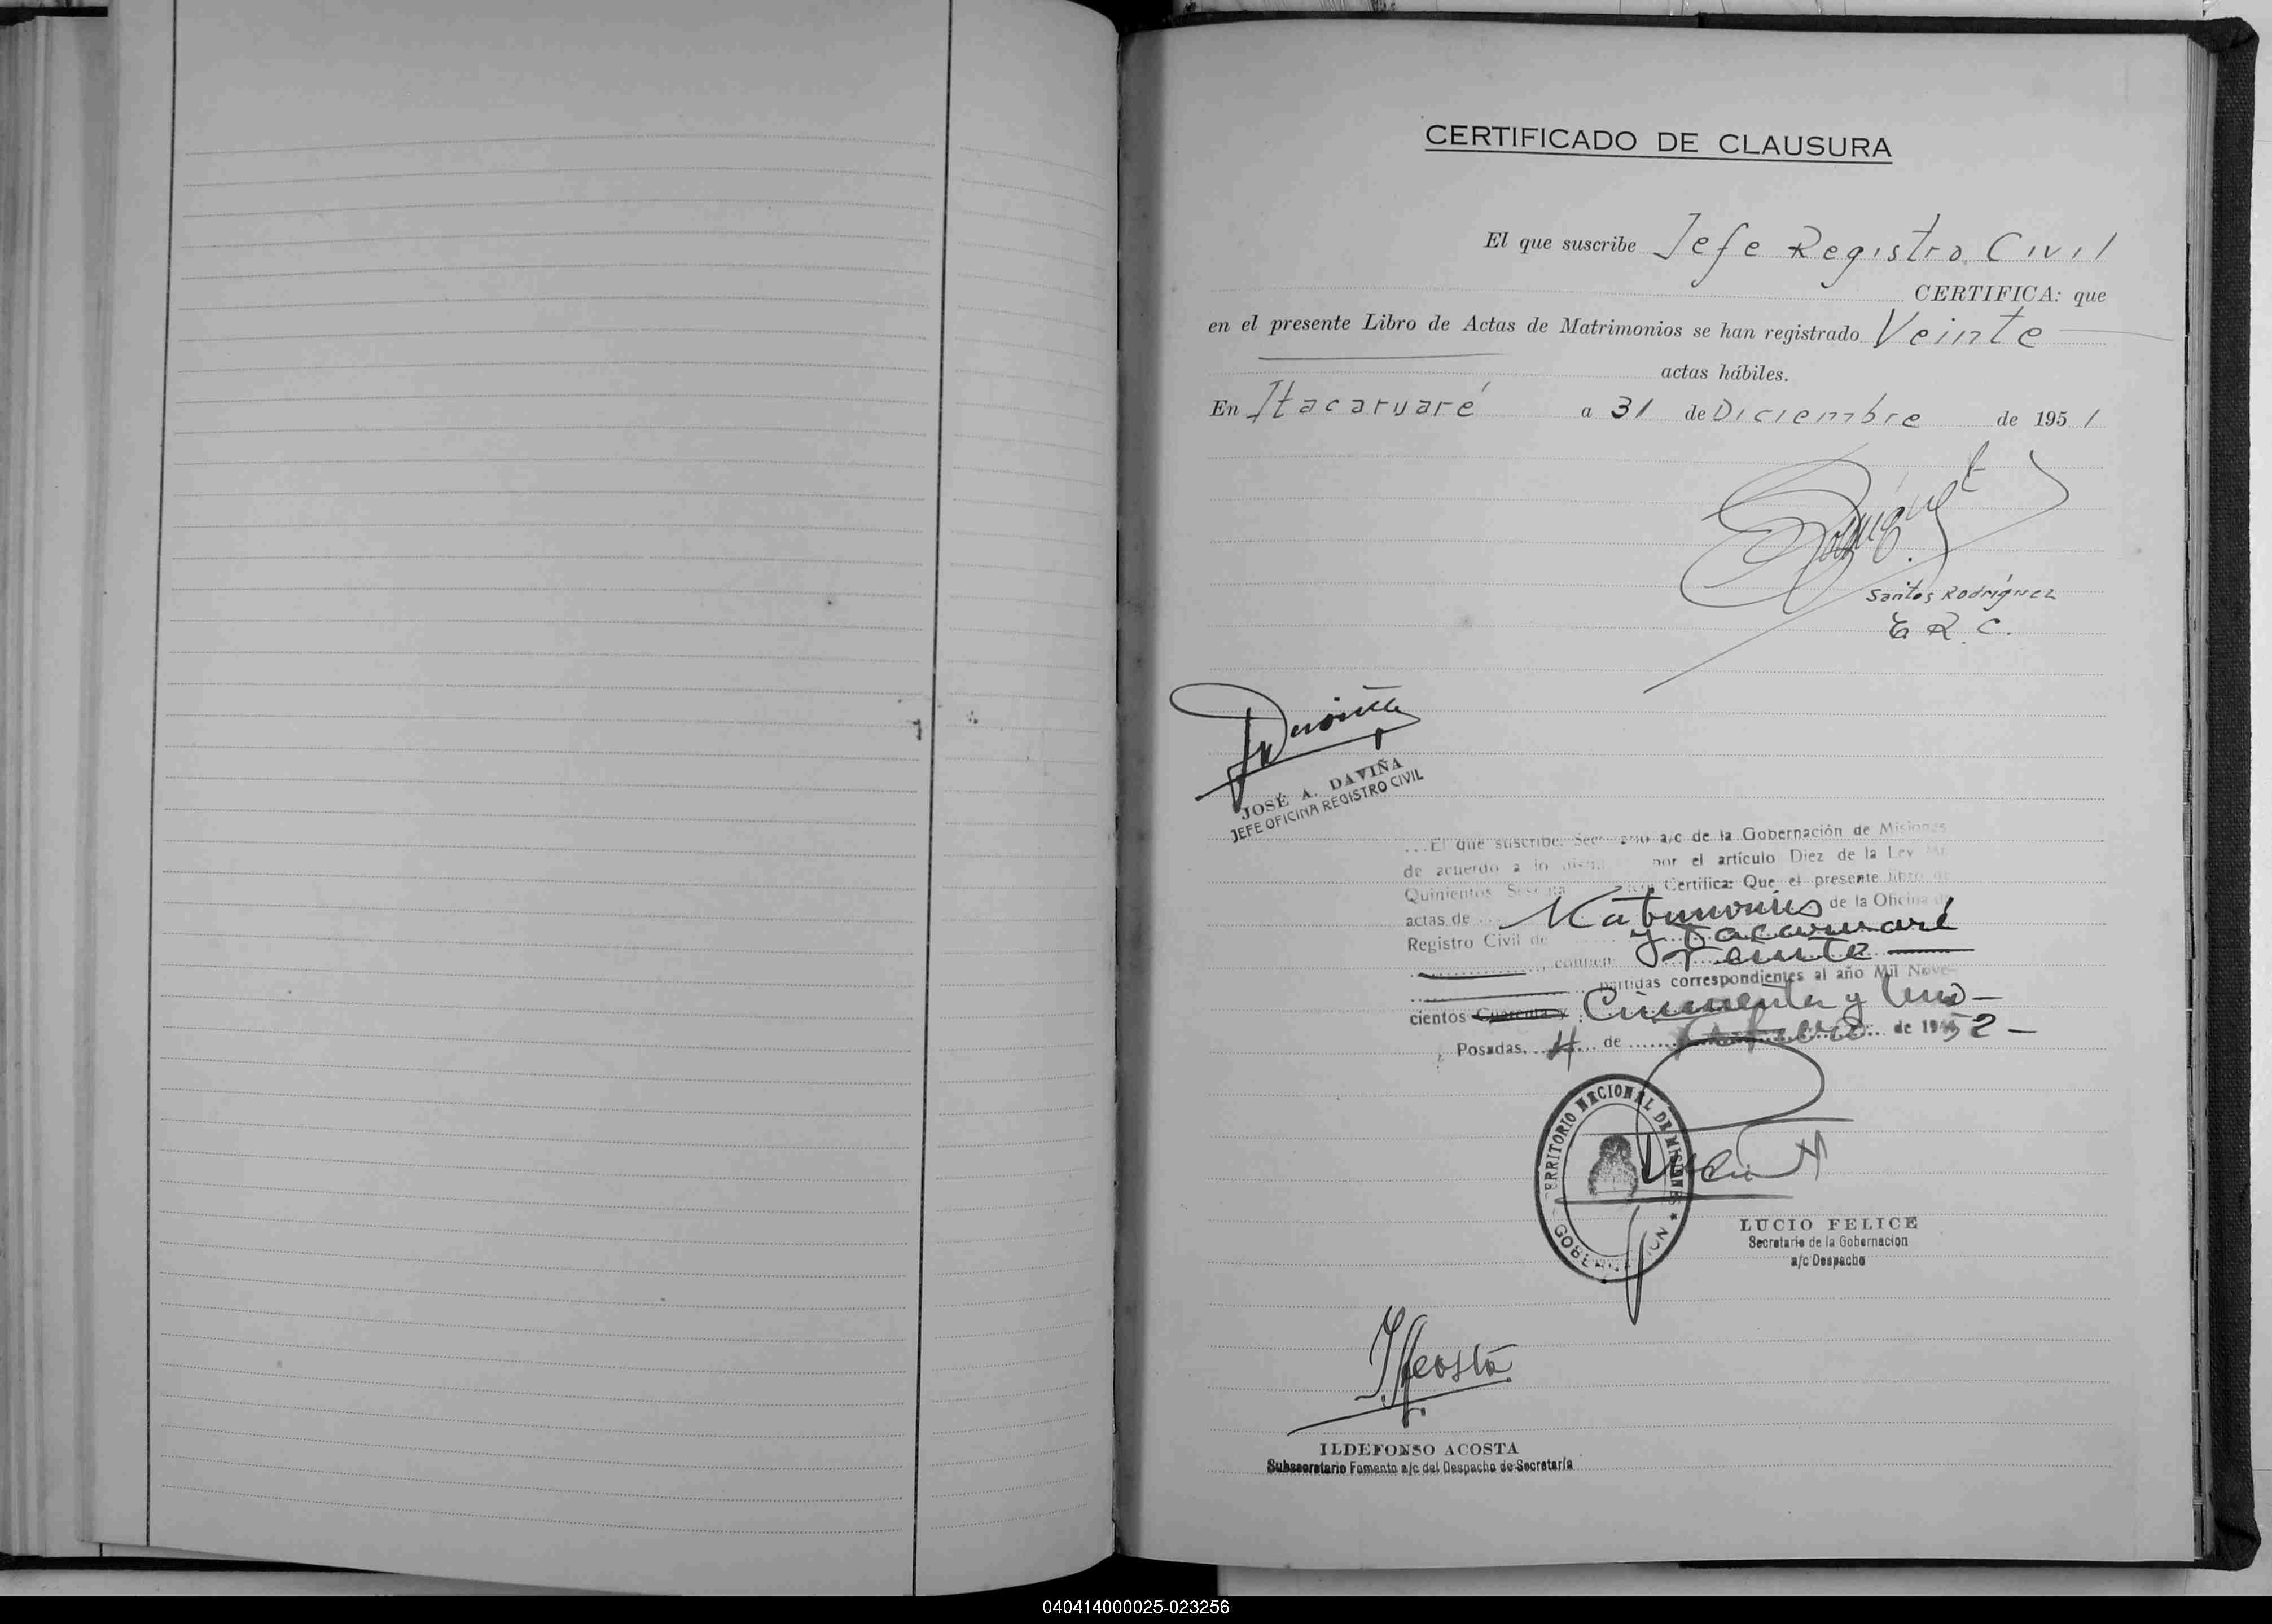 CERTIFICADO DE CLAUSURA
El que suscribe Jefe Registro Civil
CERTIFICA: que
en el presente Libro de Actas de Matrimonios se han registrado Veinte
actas hábiles.
En Itacaruaré a 31 de Diciembre de 1951
Santos Rodríguez
E R. C.
JOSÉ A. DAVIÑA
JEFE OFICINA REGISTRO CIVIL
El que suscribe. a/c de la Gobernación de Misiones
de acuerdo a lo por el artículo Diez de la Ley
Quinientos Certifica: Que el presente libro de
actas de Matrimonios de la Oficina
Registro Civil de Itacaruaré
Veinte
partidas correspondientes al año Mil Nove-
cientos Cuarenta y Cincuenta y Uno
Posadas, 4 de de 1952
TERRITORIO NACIONAL DE MISIONES
GOBERNACION
LUCIO FELICE
Secretario de la Gobernacion
a/c Despacho
IAcosta
ILDEFONSO ACOSTA
Subsecretario Fomento a/c del Despacho de Secretaría
040414000025-023256